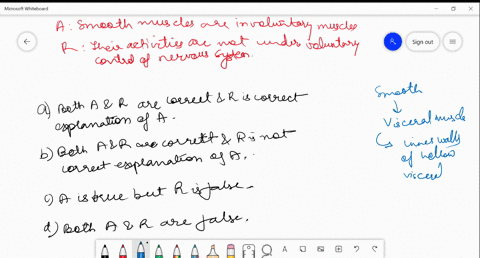 Microsoft Whiteboard
Sign out
A : Smooth muscles are involuntary muscles
R : Their activities are not under voluntary
control of nervous system.
a) Both A & R are correct & R is correct
explanation of A.
b) Both A & R are correct & R is not
correct explanation of A.
c) A is true but R is false.
d) Both A & R are false.
Smooth
↓
Visceral muscle
inner walls
of hollow
visceral